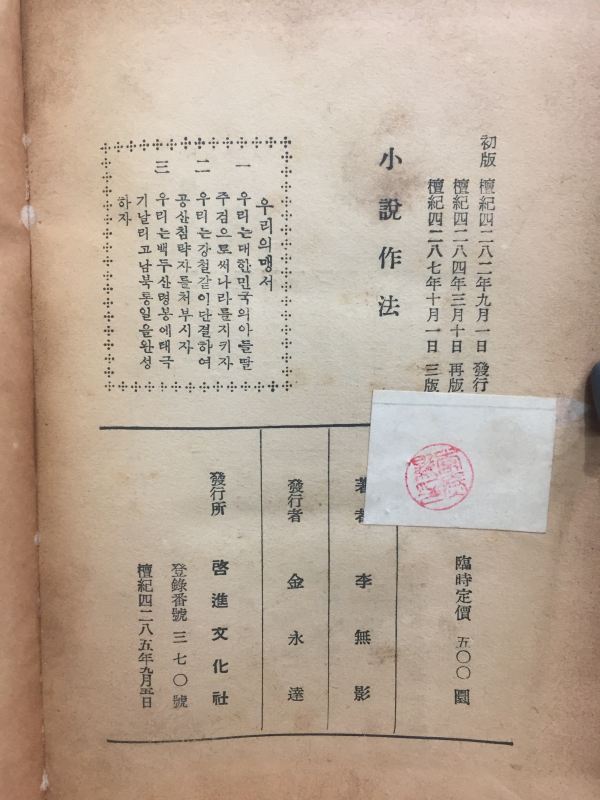 初版 檀紀四二八二年九月一日 發行
檀紀四二八四年三月十日 再版
檀紀四二八七年十月一日 三版
小說作法
우리의맹서
一 우리는대한민국의아들딸
주검으로써나라를지키자
二 우리는강철같이단결하여
공산침략자를처부시자
三 우리는백두산령봉에태극
기날리고남북통일을완성
하자
臨時定價 五〇〇圜
著者 李無影
發行者 金永達
發行所 啓進文化社
登錄番號 三七〇號
檀紀四二八五年九月五日